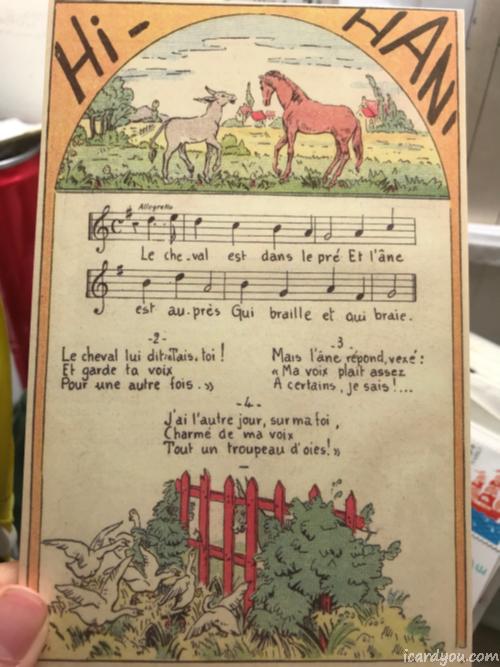 Hi-HAN!
Allegretto
Le che-val est dans le pré Et l'âne
est au-près Qui braille et qui braie.
-2-
Le cheval lui dit: «Tais-toi!
Et garde ta voix
Pour une autre fois.»
-3-
Mais l'âne répond, vexé:
«Ma voix plait assez
A certains, je sais!...
-4-
J'ai l'autre jour, sur ma foi,
Charmé de ma voix
Tout un troupeau d'oies!»
icardyou.com